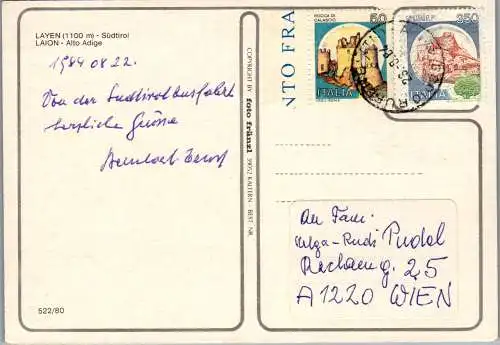 LAYEN (1100 m) - Südtirol
LAION - Alto Adige
1984 08 22.
Von der Südtirolausfahrt
herzliche Grüsse
522/80
COPYRIGHT BY foto fränzl 39052 KALTERN - BEST. NR.
NTO FRA
ROCCA DI CALASCIO
50
ITALIA
350
ITALIA
An Fam.
Helga-Rudi Pudol
25
A1220 WIEN